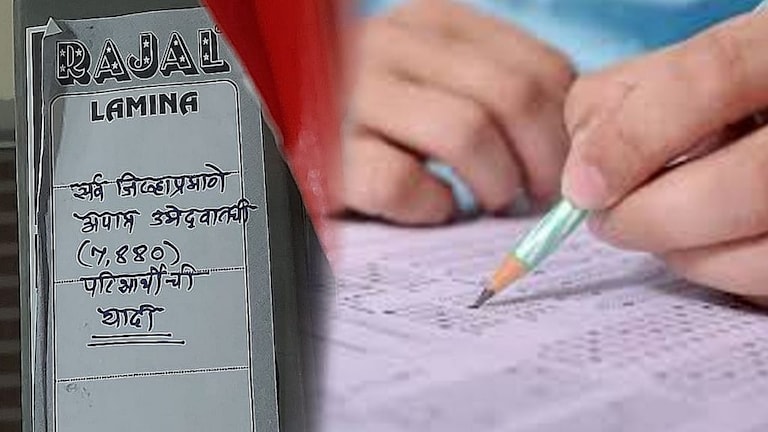 RAJAL
LAMINA
सर्व जिल्ह्याप्रमाणे
अपात्र उमेदवारांची
(7,880)
परिक्षार्थीची
यादी